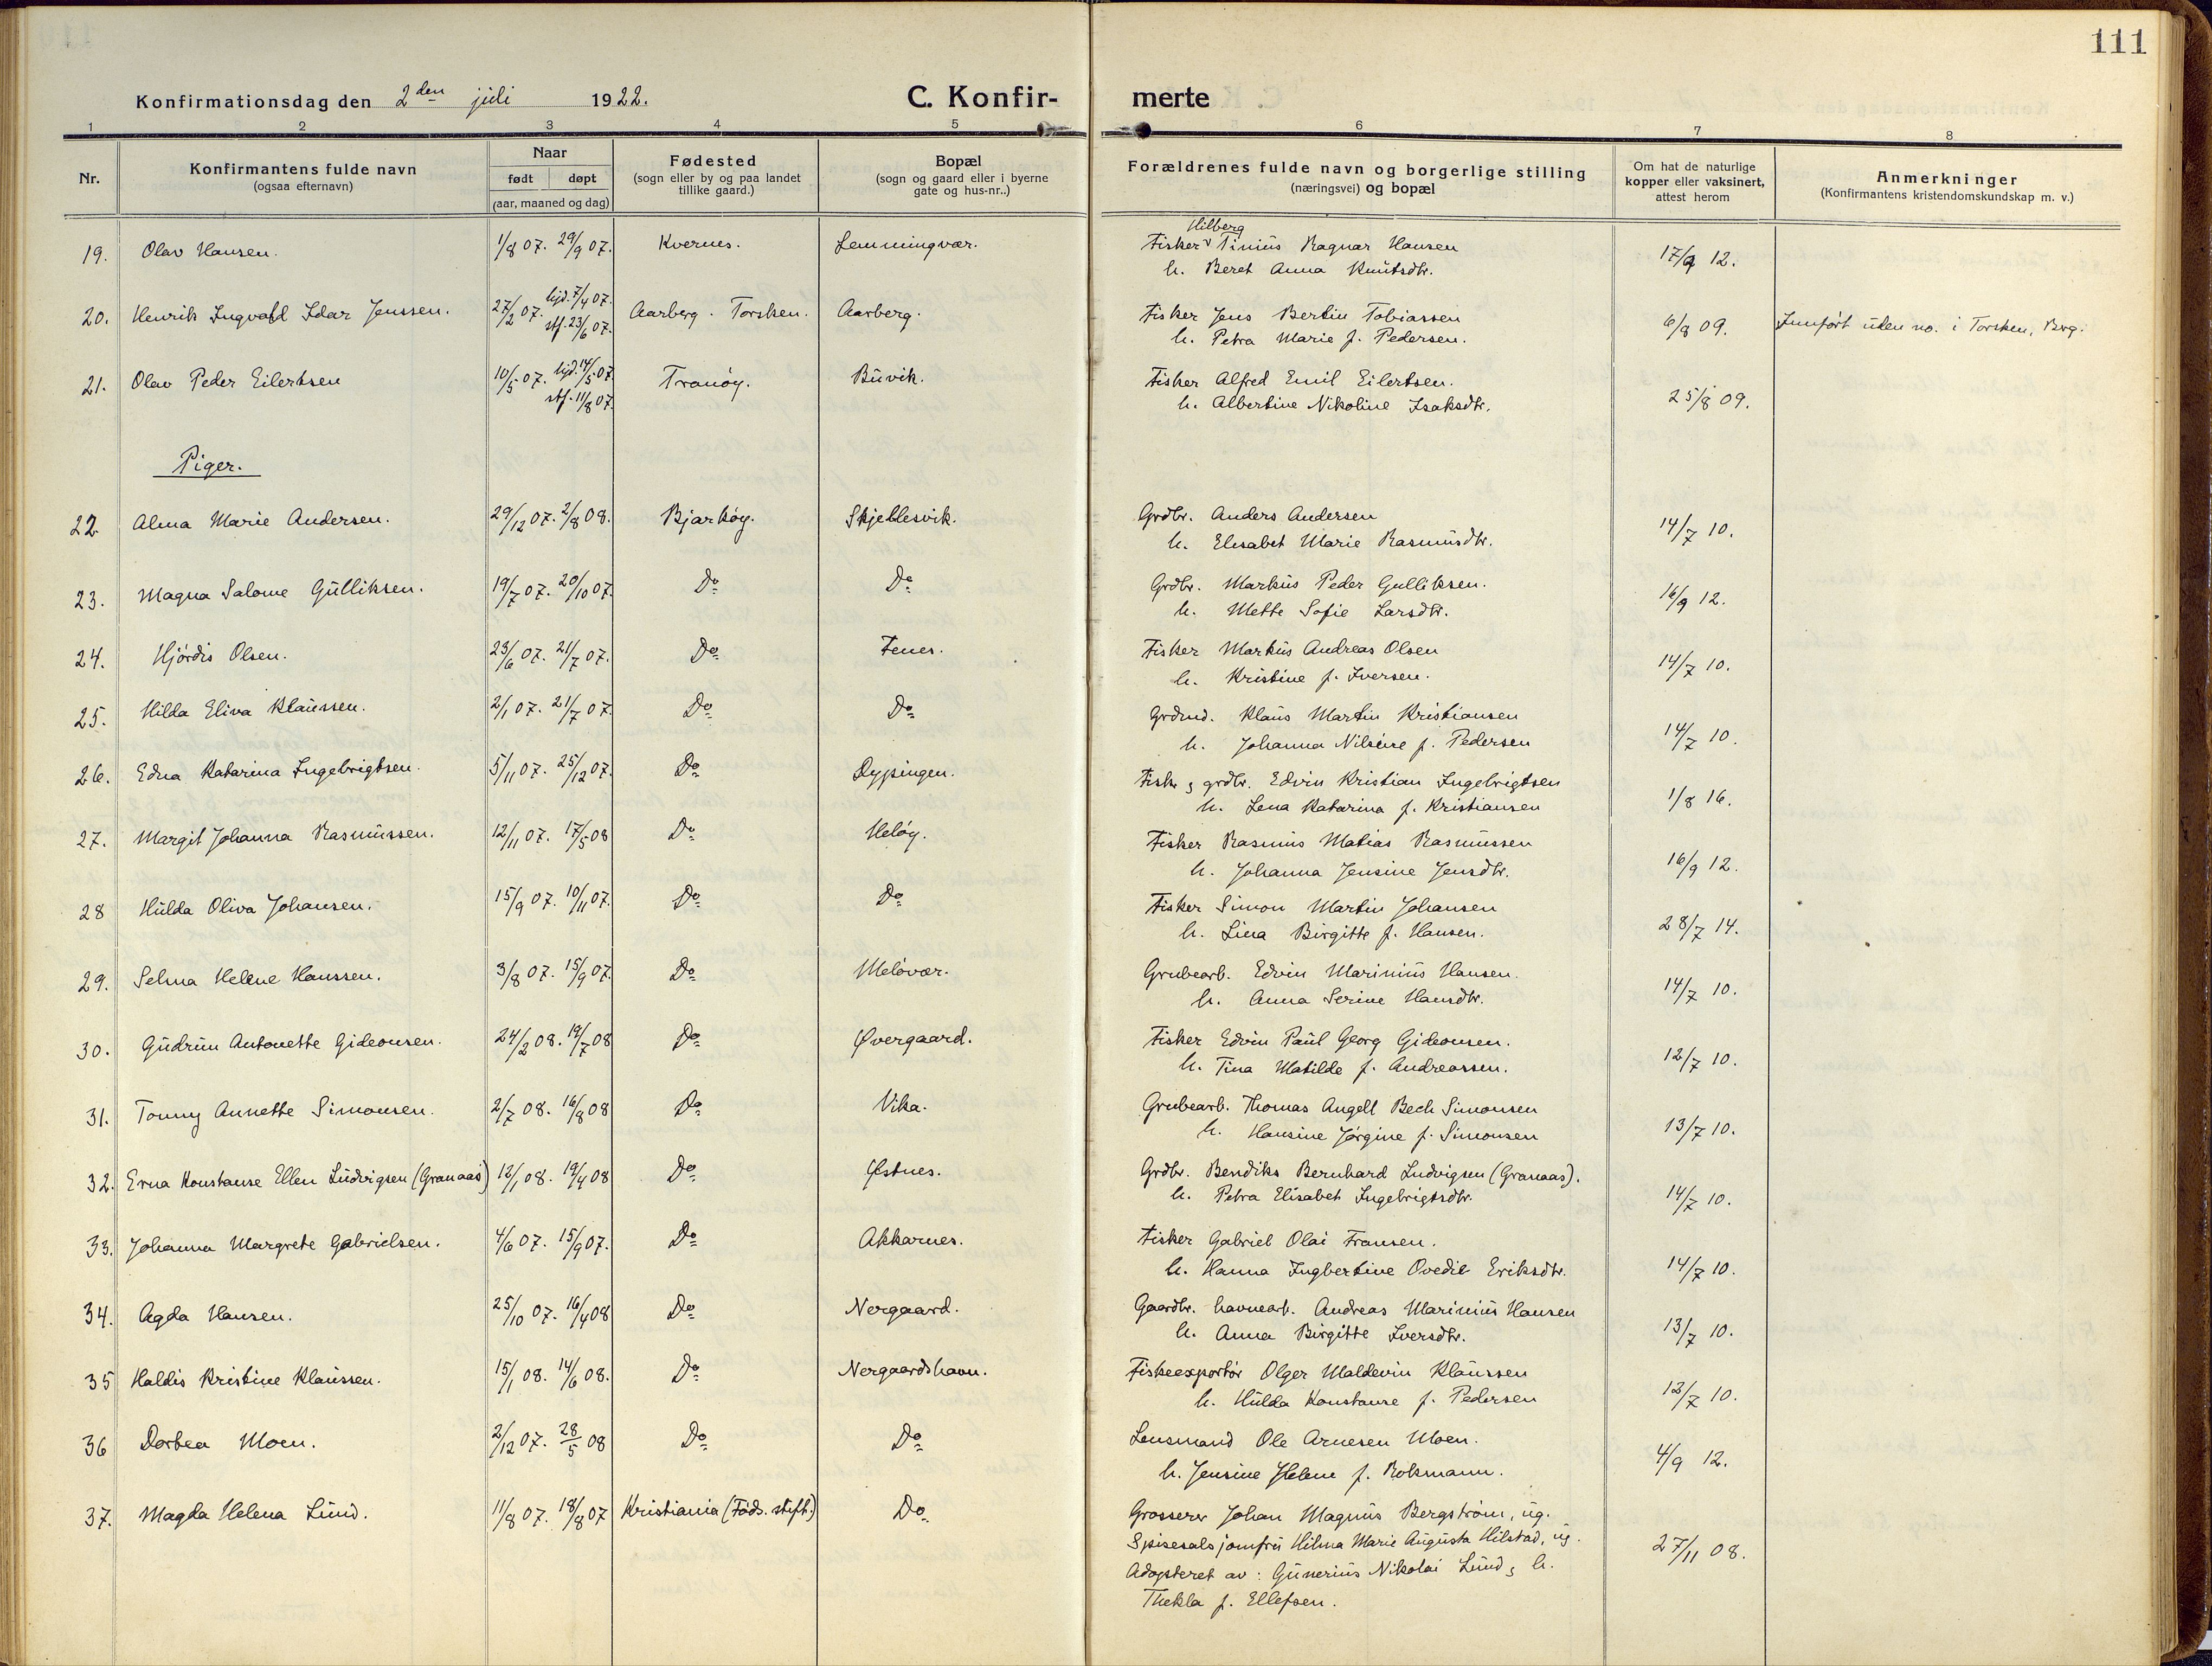 111
Konfirmationsdag den 2den juli 1922.
C. Konfirmerte
1 2 3 4 5 6 7 8
Nr.
Konfirmantens fulde navn
(ogsaa efternavn)
Naar
født døpt
(aar, maaned og dag)
Fødested
(sogn eller by og paa landet
tillike gaard.)
Bopæl
(sogn og gaard eller i byerne
gate og hus-nr..)
Forældrenes fulde navn og borgerlige stilling
(næringsvei) og bopæl
Om hat de naturlige
kopper eller vaksinert,
attest herom
Anmerkninger
(Konfirmantens kristendomskundskap m. v.)
Hilberg
19. Olav Hansen. 1/8 07. 29/9 07. Kvernes. Lemmingvær. Fisker Tinius Ragnar Hansen 17/9 12.
h. Beret Anna Knutsdtr.
20. Henrik Ingvald Idar Jenssen. 27/2 07. hjd. 7/4 07. Aarberg. Torsken. Aarberg. Fisker Jens Bertin Tobiassen 6/8 09. Innført uden no. i Torsken, Brg.
stf. 23/6 07. h. Petra Marie f. Pedersen.
21. Olav Peder Eilertsen 10/5 07. hjd. 14/5 07. Tranøy. Buvik. Fisker Alfred Emil Eilertsen. 25/8 09.
stf. 11/8 07. h. Albertine Nikoline Isaksdtr.
Piger.
22. Alma Marie Andersen. 29/12 07. 2/8 08. Bjarkøy. Skjellesvik. Grdbr. Anders Andersen 14/7 10.
h. Elisabet Marie Rasmusdtr.
23. Magna Salome Gulliksen. 19/7 07. 20/10 07. Do Do Grdbr. Markus Peder Gulliksen. 16/9 12.
h. Mette Sofie Larsdtr.
24. Hjördis Olsen. 23/6 07. 21/7 07. Do Fenes. Fisker Markus Andreas Olsen 14/7 10.
h. Kristine f. Iversen.
25. Hilda Eliva Klaussen. 2/1 07. 21/7 07. Do Do Grdmd. Klaus Martin Kristiansen 14/7 10.
h. Johanna Nilsine f. Pedersen
26. Edna Katarina Ingebrigtsen. 5/11 07. 25/12 07. Do Dypingen. Fisk. & grdbr. Edvin Kristian Ingebrigtsen 1/8 16.
h. Lena Katarina f. Kristiansen
27. Margit Johanna Rasmussen. 12/11 07. 17/5 08 Do Meløy. Fisker Rasmus Matias Rasmussen 16/9 12.
h. Johanna Jensine Jensdtr.
28 Hulda Oliva Johansen. 15/9 07. 10/11 07. Do Do Fisker Simon Martin Johansen 28/7 14.
h. Lina Birgitte f. Hansen.
29. Selma Helene Hanssen. 3/8 07. 15/9 07. Do Meløvær. Grubearb. Edvin Marinius Hansen. 14/7 10.
h. Anna Serine Hansdtr.
30. Gudrun Antonette Gideonsen. 24/2 08. 19/7 08 Do Øvergaard. Fisker Edvin Paul Georg Gideonsen. 12/7 10.
h. Tina Matilde f. Andreassen.
31. Tonny Annette Simonsen. 2/7 08. 16/8 08 Do Vika. Grubearb. Thomas Angell Bech Simonsen 13/7 10.
h. Hansine Jørgine f. Simonsen
32. Erna Konstanse Ellen Ludvigsen (Granaas) 12/1 08. 19/4 08 Do Østnes. Grdbr. Bendiks Bernhard Ludvigsen (Granaas). 14/7 10.
h. Petra Elisabet Ingebrigtsdtr.
33. Johanna Margrete Gabrielsen. 4/6 07. 15/9 07. Do Akkarnes. Fisker Gabriel Olai Fransen. 14/7 10.
h. Hanna Ingbertine Ovedie Eriksdtr.
34. Agda Hansen. 25/10 07. 16/4 08 Do Nergaard. Gaardbr. havnearb. Andreas Marinius Hansen 13/7 10.
h. Anna Birgitte Iversdtr.
35 Haldis Kristine Klaussen. 15/1 08. 14/6 08. Do Nergaardshavn. Fiskeexportör Olger Maldevin Klaussen 12/7 10.
h. Hulda Konstanse f. Pedersen
36 Dorbea Moen. 2/12 07. 28/5 08 Do Do Lensmand Ole Arnesen Moen. 4/9 12.
h. Jensine Helene f. Rokmann.
37. Magda Helena Lund. 11/8 07. 18/8 07 Kristiania (Føds. stift.) Do Grosserer Johan Magnus Bergström, ug. 27/11 08.
Spisesalsjomfru Hilma Marie Augusta Hilstad, ug.
Adopteret av: Gunerius Nikolai Lund & h.
Thekla f. Ellefsen.